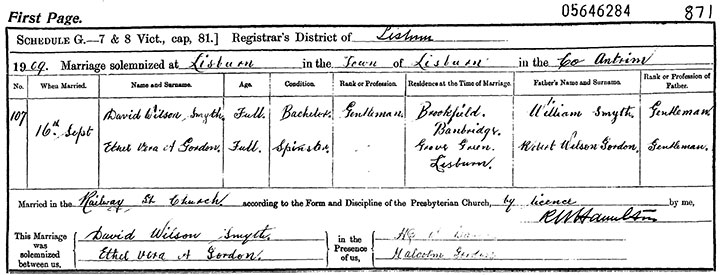 First Page.
05646284 871
SCHEDULE G.—7 & 8 Vict., cap, 81.] Registrar's District of Lisburn
1909. Marriage solemnized at Lisburn in the Town of Lisburn in the Co Antrim
No. When Married. Name and Surname. Age. Condition. Rank or Profession. Residence at the Time of Marriage. Father's Name and Surname. Rank or Profession of Father.
107 16th Sept David Wilson Smyth. Full. Bachelor. Gentleman. Brookfield. Banbridge. William Smyth. Gentleman.
Ethel Vera A Gordon. Full. Spinster. Grove Green. Lisburn. Robert Wilson Gordon. Gentleman.
Married in the Railway St Church according to the Form and Discipline of the Presbyterian Church, by licence by me,
R W Hamilton
This Marriage was solemnized between us, David Wilson Smyth. Ethel Vera A Gordon. in the Presence of us, Malcolm Gordon